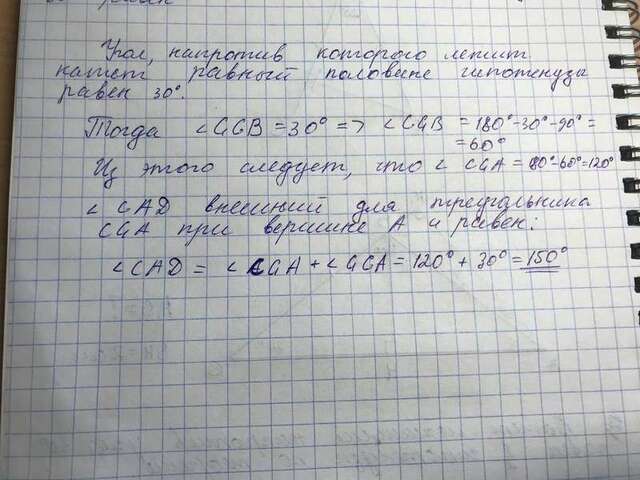 Угол, напротив которого лежит
катет равный половине гипотенузы
равен 30°.
Тогда ∠CGB = 30° => ∠CGB = 180°-30°-90° =
= 60°
Из этого следует, что ∠ CGA = 180°-60°=120°
∠ CAD внешний для треугольника
CGA при вершине A и равен:
∠CAD = ∠CGA + ∠GCA = 120° + 30° = 150°